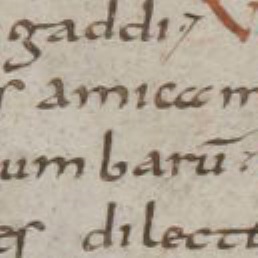 gaddi.
s amica m
umbarū.
es dilect